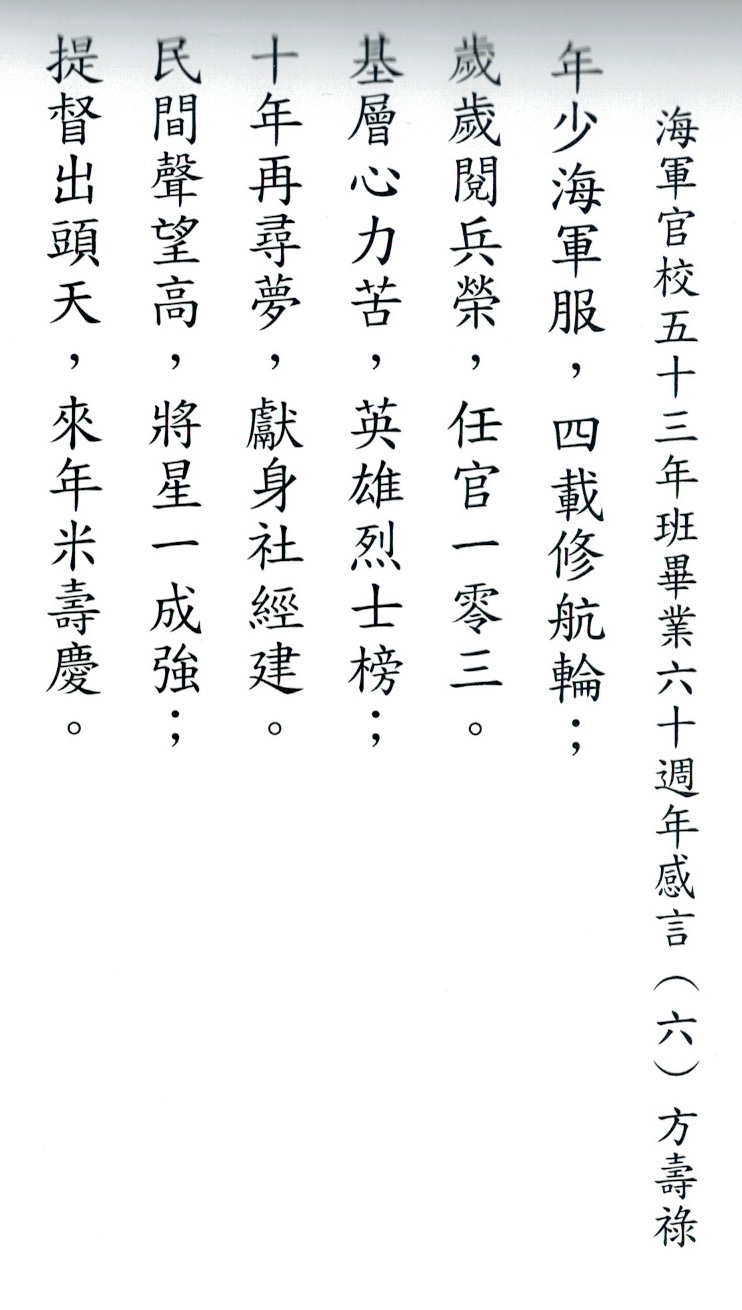 海軍官校五十三年班畢業六十週年感言（六）方壽祿
年少海軍服，四載修航輪；
歲歲閱兵榮，任官一零三。
基層心力苦，英雄烈士榜；
十年再尋夢，獻身社經建。
民間聲望高，將星一成強；
提督出頭天，來年米壽慶。